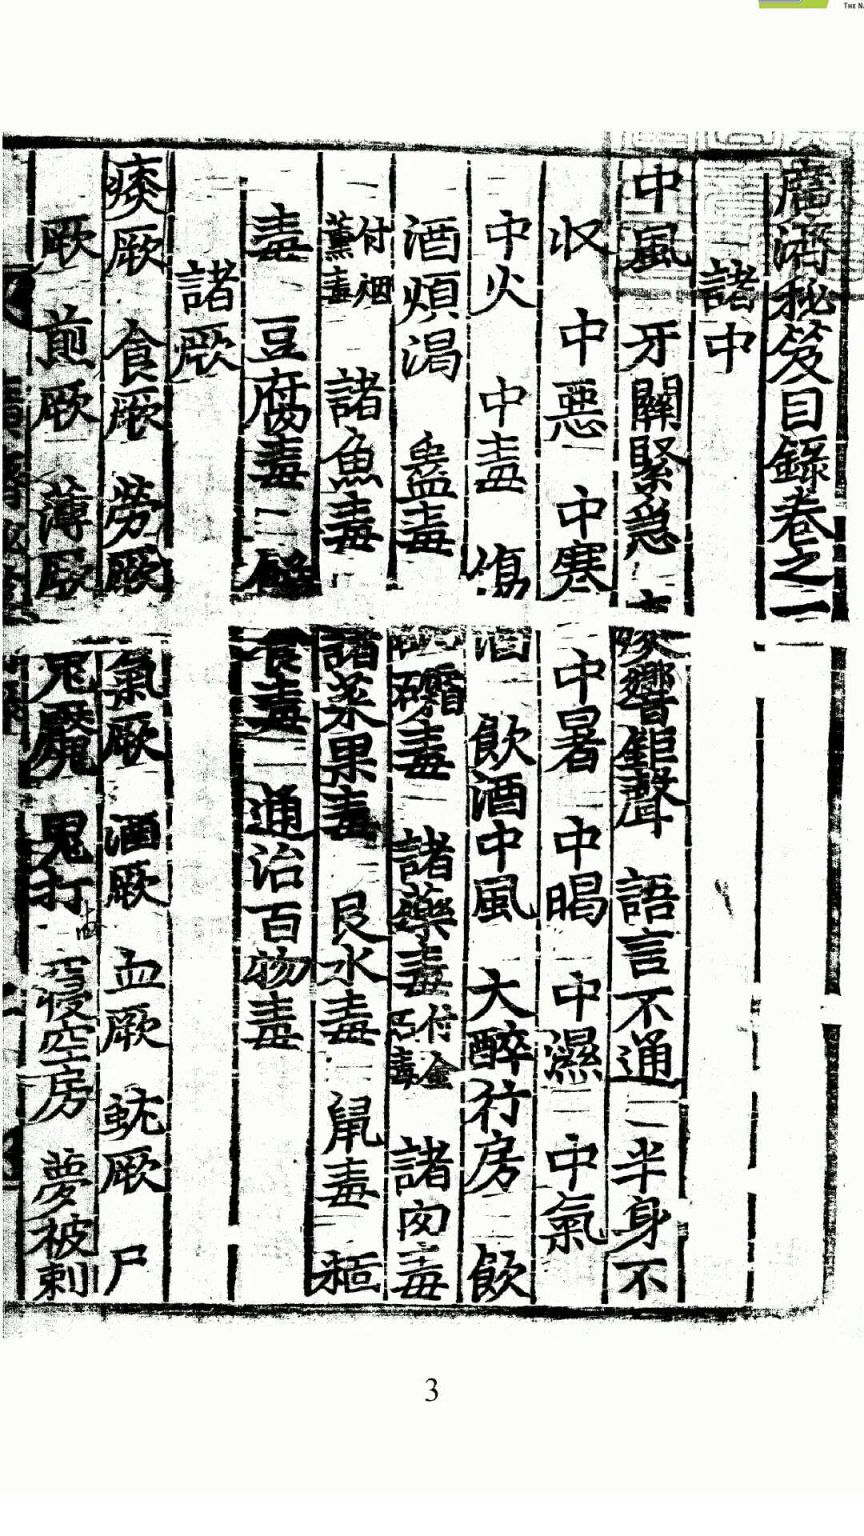 廣濟秘笈目錄卷之一
諸中
中風 牙關緊急 痰響鉅聲 語言不通 半身不
収 中惡 中寒 中暑 中暍 中濕 中氣
中火 中毒 傷酒 飲酒中風 大醉行房 飲
酒煩渴 蠱毒 礵毒 諸藥毒 付金石毒 諸肉毒
付烟薰毒 諸魚毒 諸菜果毒 艮水毒 鼠毒
毒 豆腐毒 食毒 通治百物毒
諸厥
痰厥 食厥 勞厥 氣厥 酒厥 血厥 蚘厥 尸
厥 煎厥 薄厥 鬼魘 鬼打 寢空房 夢被刺
3